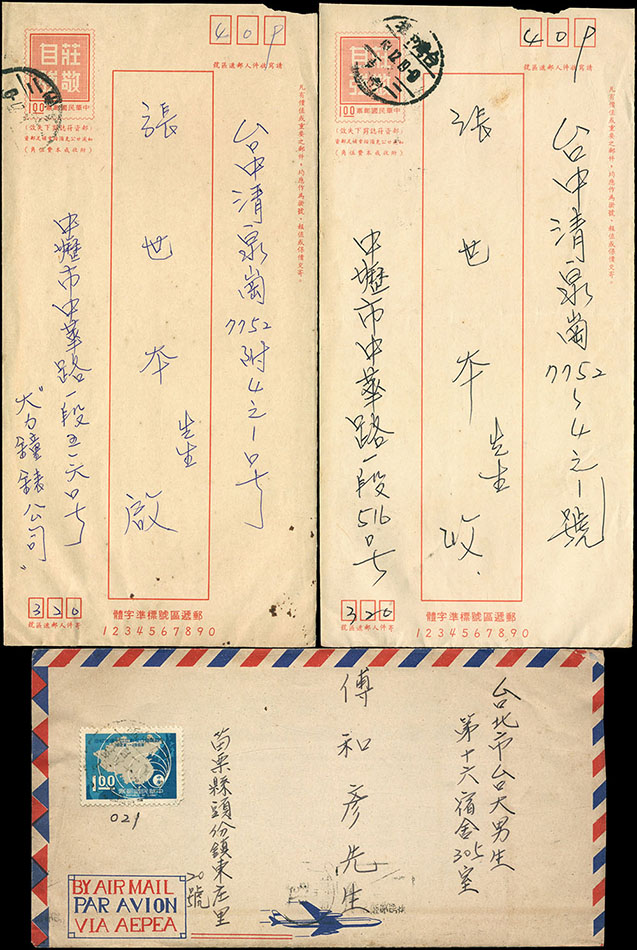 409
請寫收件人郵遞區號
莊敬自強
1.00 中華民國郵票
台中清泉崗7752附4之1号
張世本 先生 啟
中壢市中華路一段五一六号
"大力鐘錶公司"
320
寄件人郵遞區號
郵遞區號標準字體
1234567890
409
請寫收件人郵遞區號
1.00 中華民國郵票
台中清泉崗7752之4之1號
張世本 先生 收
中壢市中華路一段516号
320
寄件人郵遞區號
郵遞區號標準字體
1234567890
台北市台大男生
第十六宿舍305室
傅和彥先生
苗栗縣頭份鎮東庄里
20號
1.00
中華民國郵票
021
BY AIR MAIL
PAR AVION
VIA AEPEA